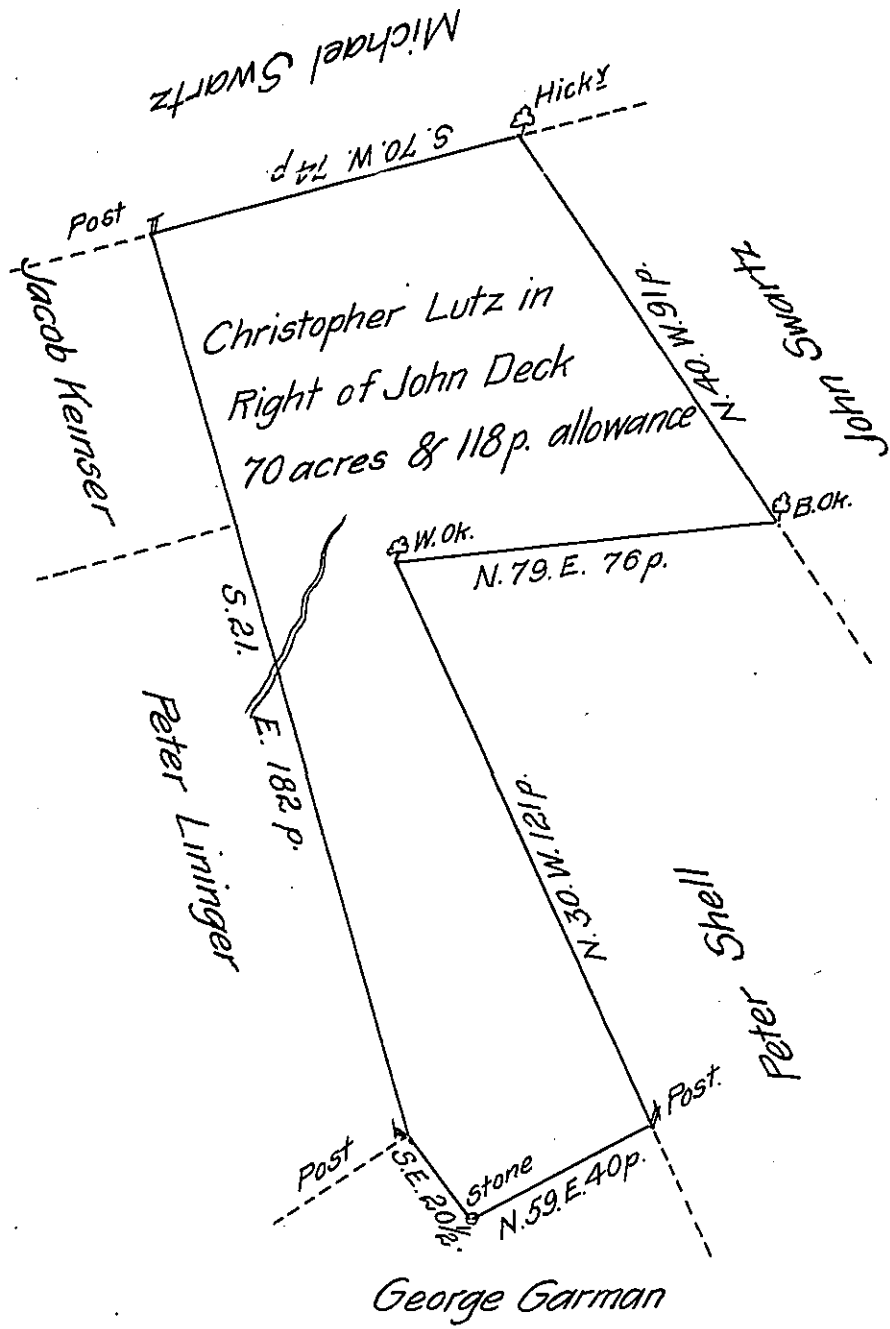 Michael Swartz
Hicky
S. 70. W. 74 p
Post
Jacob Keinser
Christopher Lutz in
Right of John Deck
70 acres & 118 p. allowance
N. 40. W. 91 p.
John Swartz
B. Ok.
W. Ok.
N. 79. E. 76 p.
S. 21. E. 182 p.
Peter Lininger
N. 30. W. 121 p.
Peter Shell
Post.
Post
S. E. 20 1/2.
Stone
N. 59. E. 40 p.
George Garman